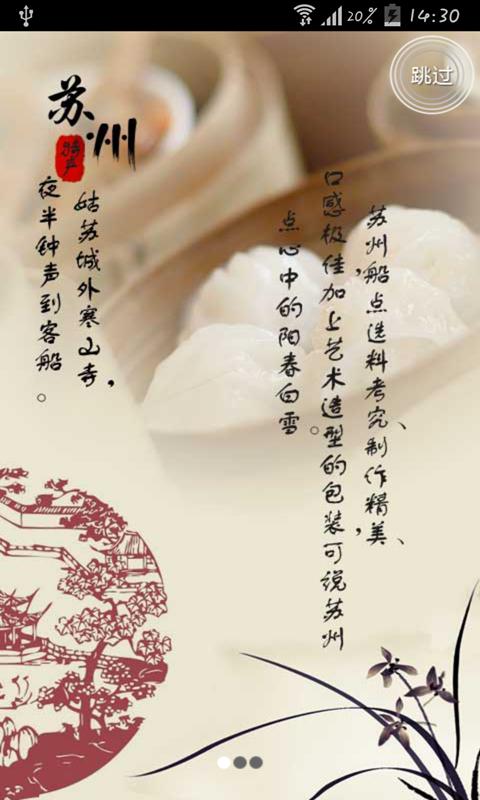 20% 14:30
跳过
苏州
特产
姑苏城外寒山寺,
夜半钟声到客船。
苏州船点选料考究、制作精美、
口感极佳,加上艺术造型的包装,可说苏州
点心中的阳春白雪。